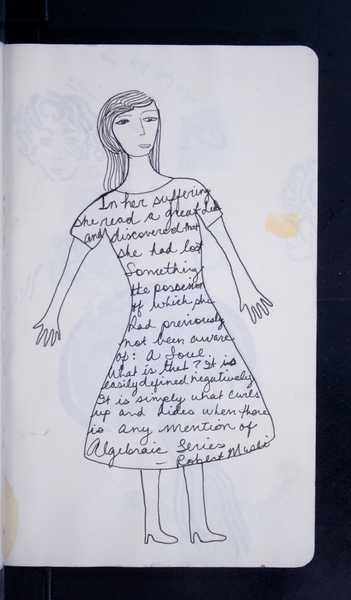 In her suffering
she read a great deal
and discovered that
she had lost
Something
the possession
of which she
had previously
not been aware
of: A Soul.
What is that? It is
easily defined negatively
It is simply what curls
up and hides when there
is any mention of
Algebraic Series
— Robert Musil